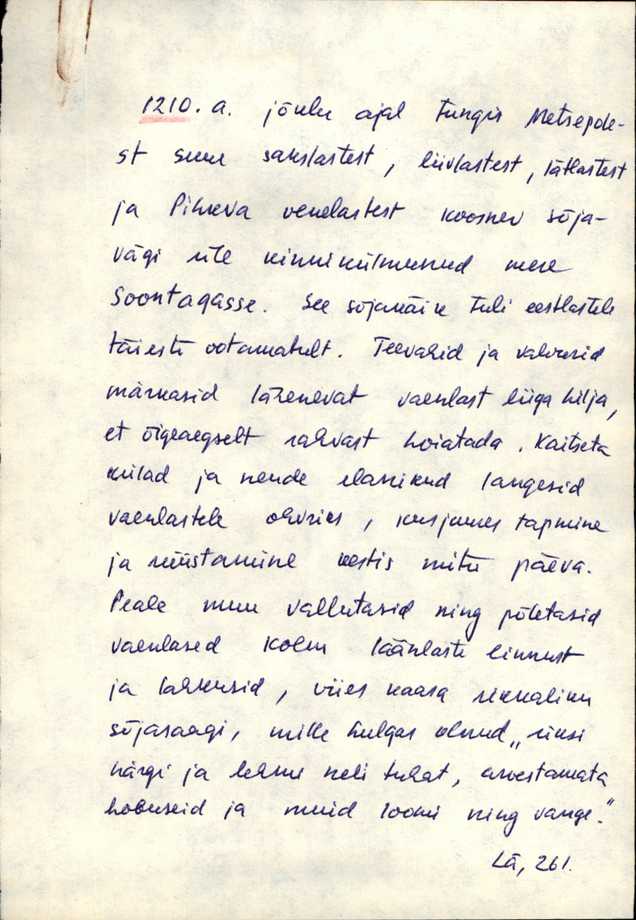 1210. a. jõulu ajal tungis Metsepole-
st suur sakslastest, liivlastest, lätlastest
ja Pihkva venelastest koosnev sõja-
vägi üle kinnikülmunud mere
Soontagasse. See sõjakäik tuli eestlastele
täiesti ootamatult. Teevahid ja valvurid
märkasid lähenevat vaenlast liiga hilja,
et õigeaegselt rahvast hoiatada. Kaitseta
külad ja nende elanikud langesid
vaenlastele ohvriks, kusjuures tapmine
ja rüüstamine kestis mitu päeva.
Peale muu vallutasid ning põletasid
vaenlased kolm läänlaste linnust
ja lahkusid, viies kaasa rikkaliku
sõjasaagi, mille hulgas olnud „üksi
härgi ja lehmi neli tuhat, arvestamata
hobuseid ja muid loomi ning vange."
Lä, 261.